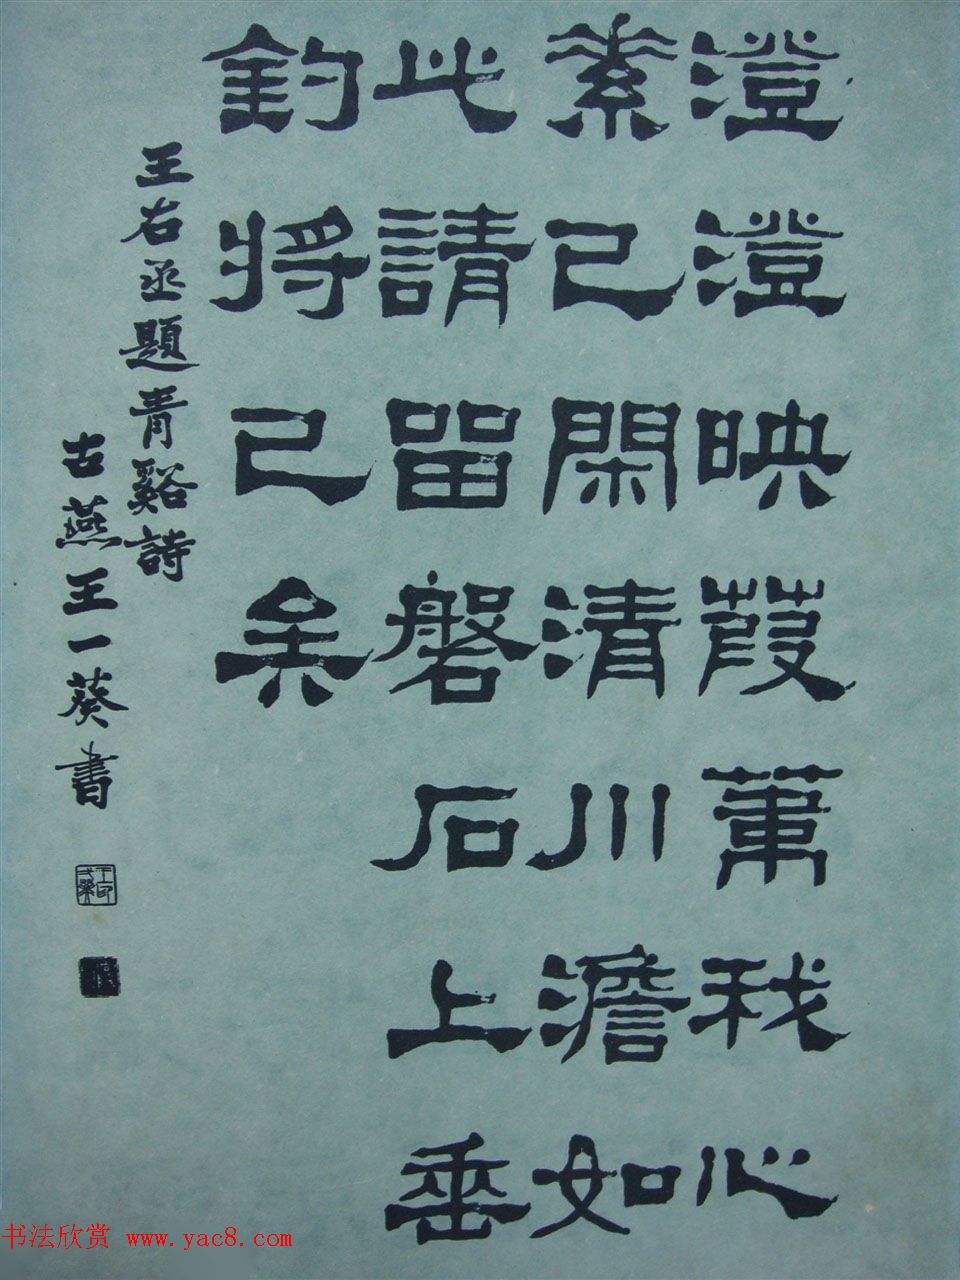 澄澄映葭葦我心
素已閑清川澹如
此請留磐石上垂
釣将已矣
王右丞題青谿詩
古燕王一葵書
书法欣赏 www.yac8.com